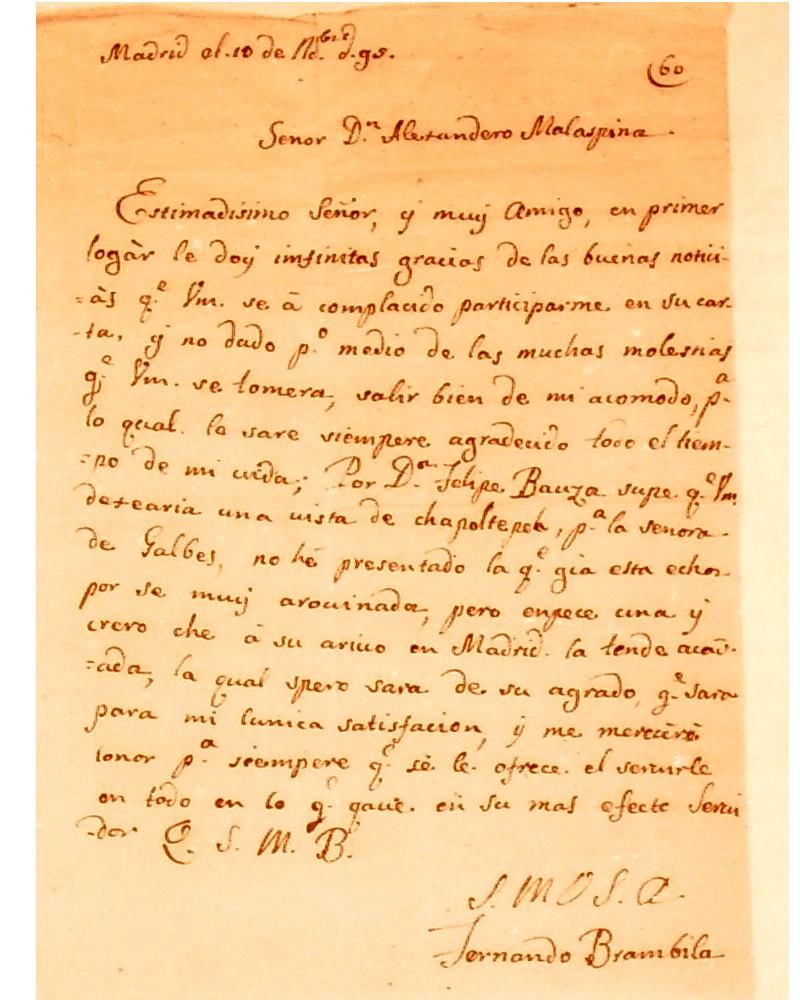 Madrid al 10 de Nbre d. 95.
(60
Senor Dn Alexandero Malaspina.
Estimadisimo Señor, y muy Amigo, en primer
logàr le doy imfinitas gracias de las buenas notici-
=às qe Vm. se â complacido participarme en su car-
-ta, y no dado po medio de las muchas molestias
qe Vm. se tomera, salir bien de mi acomodo, pa
lo qual le sare siempere agradecido todo el tiem-
=po de mi vida; Por Dn Felipe Bauza supe qe Vm.
dexearia una vista de chapoltepek, pa la senora
de Galbes, no hé presentado la qe gia esta echa
por se muy arouinada, pero enpece una y
crero che â su arivo en Madrid la tende acav-
=ada, la qual spero sara de su agrado, qe sara
para mi lunica satisfacion, y me mercerè
lonor pa siempere qe sè le ofrece el servirle
en todo en lo qe en su mas efecto Servi
-dor Q. S. M. B.
S. M O S. A.
Fernando Brambila